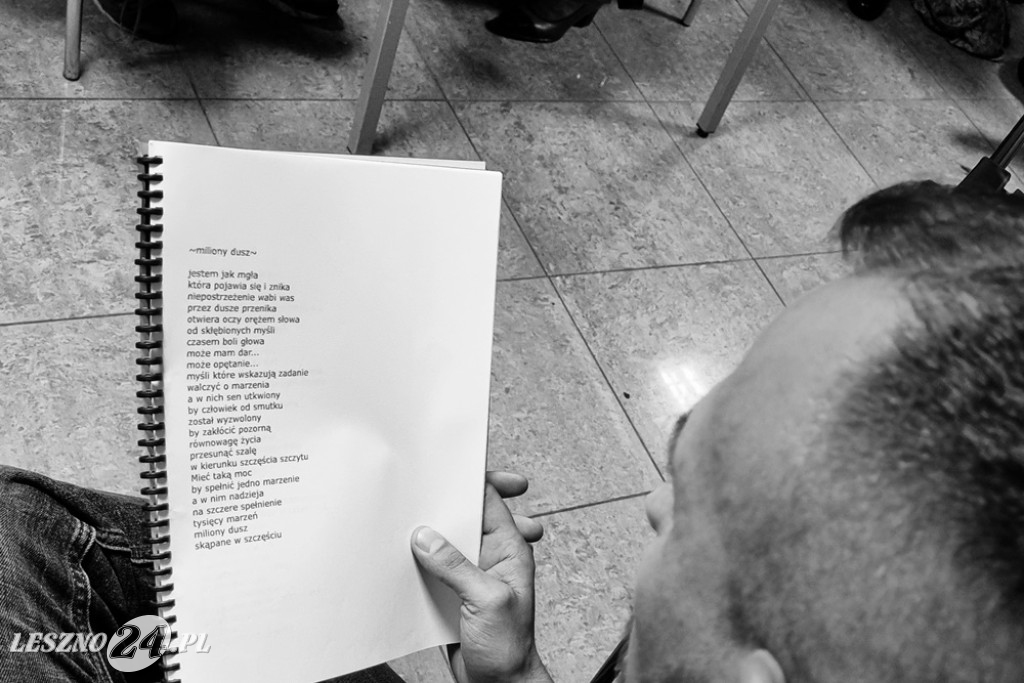 ~miliony dusz~
jestem jak mgła
która pojawia się i znika
niepostrzeżenie wabi was
przez dusze przenika
otwiera oczy orężem słowa
od skłębionych myśli
czasem boli głowa
może mam dar...
może opętanie...
myśli które wskazują zadanie
walczyć o marzenia
a w nich sen utkwiony
by człowiek od smutku
został wyzwolony
by zakłócić pozorną
równowagę życia
przesunąć szalę
w kierunku szczęścia szczytu
Mieć taką moc
by spełnić jedno marzenie
a w nim nadzieja
na szczere spełnienie
tysięcy marzeń
miliony dusz
skąpane w szczęściu
LESZNO24.PL